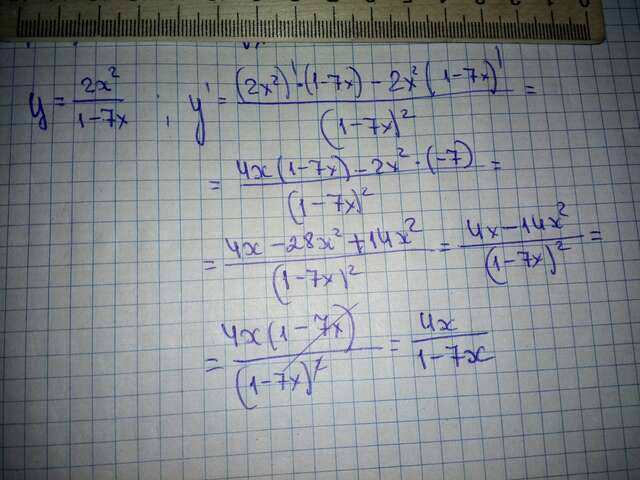 y = 2x²/(1-7x) ; y' = ((2x²)'·(1-7x) - 2x²(1-7x)')/(1-7x)² =
= (4x(1-7x) - 2x²·(-7))/(1-7x)² =
= (4x - 28x² + 14x²)/(1-7x)² = (4x - 14x²)/(1-7x)² =
= (4x(1-7x))/(1-7x)² = 4x/(1-7x)